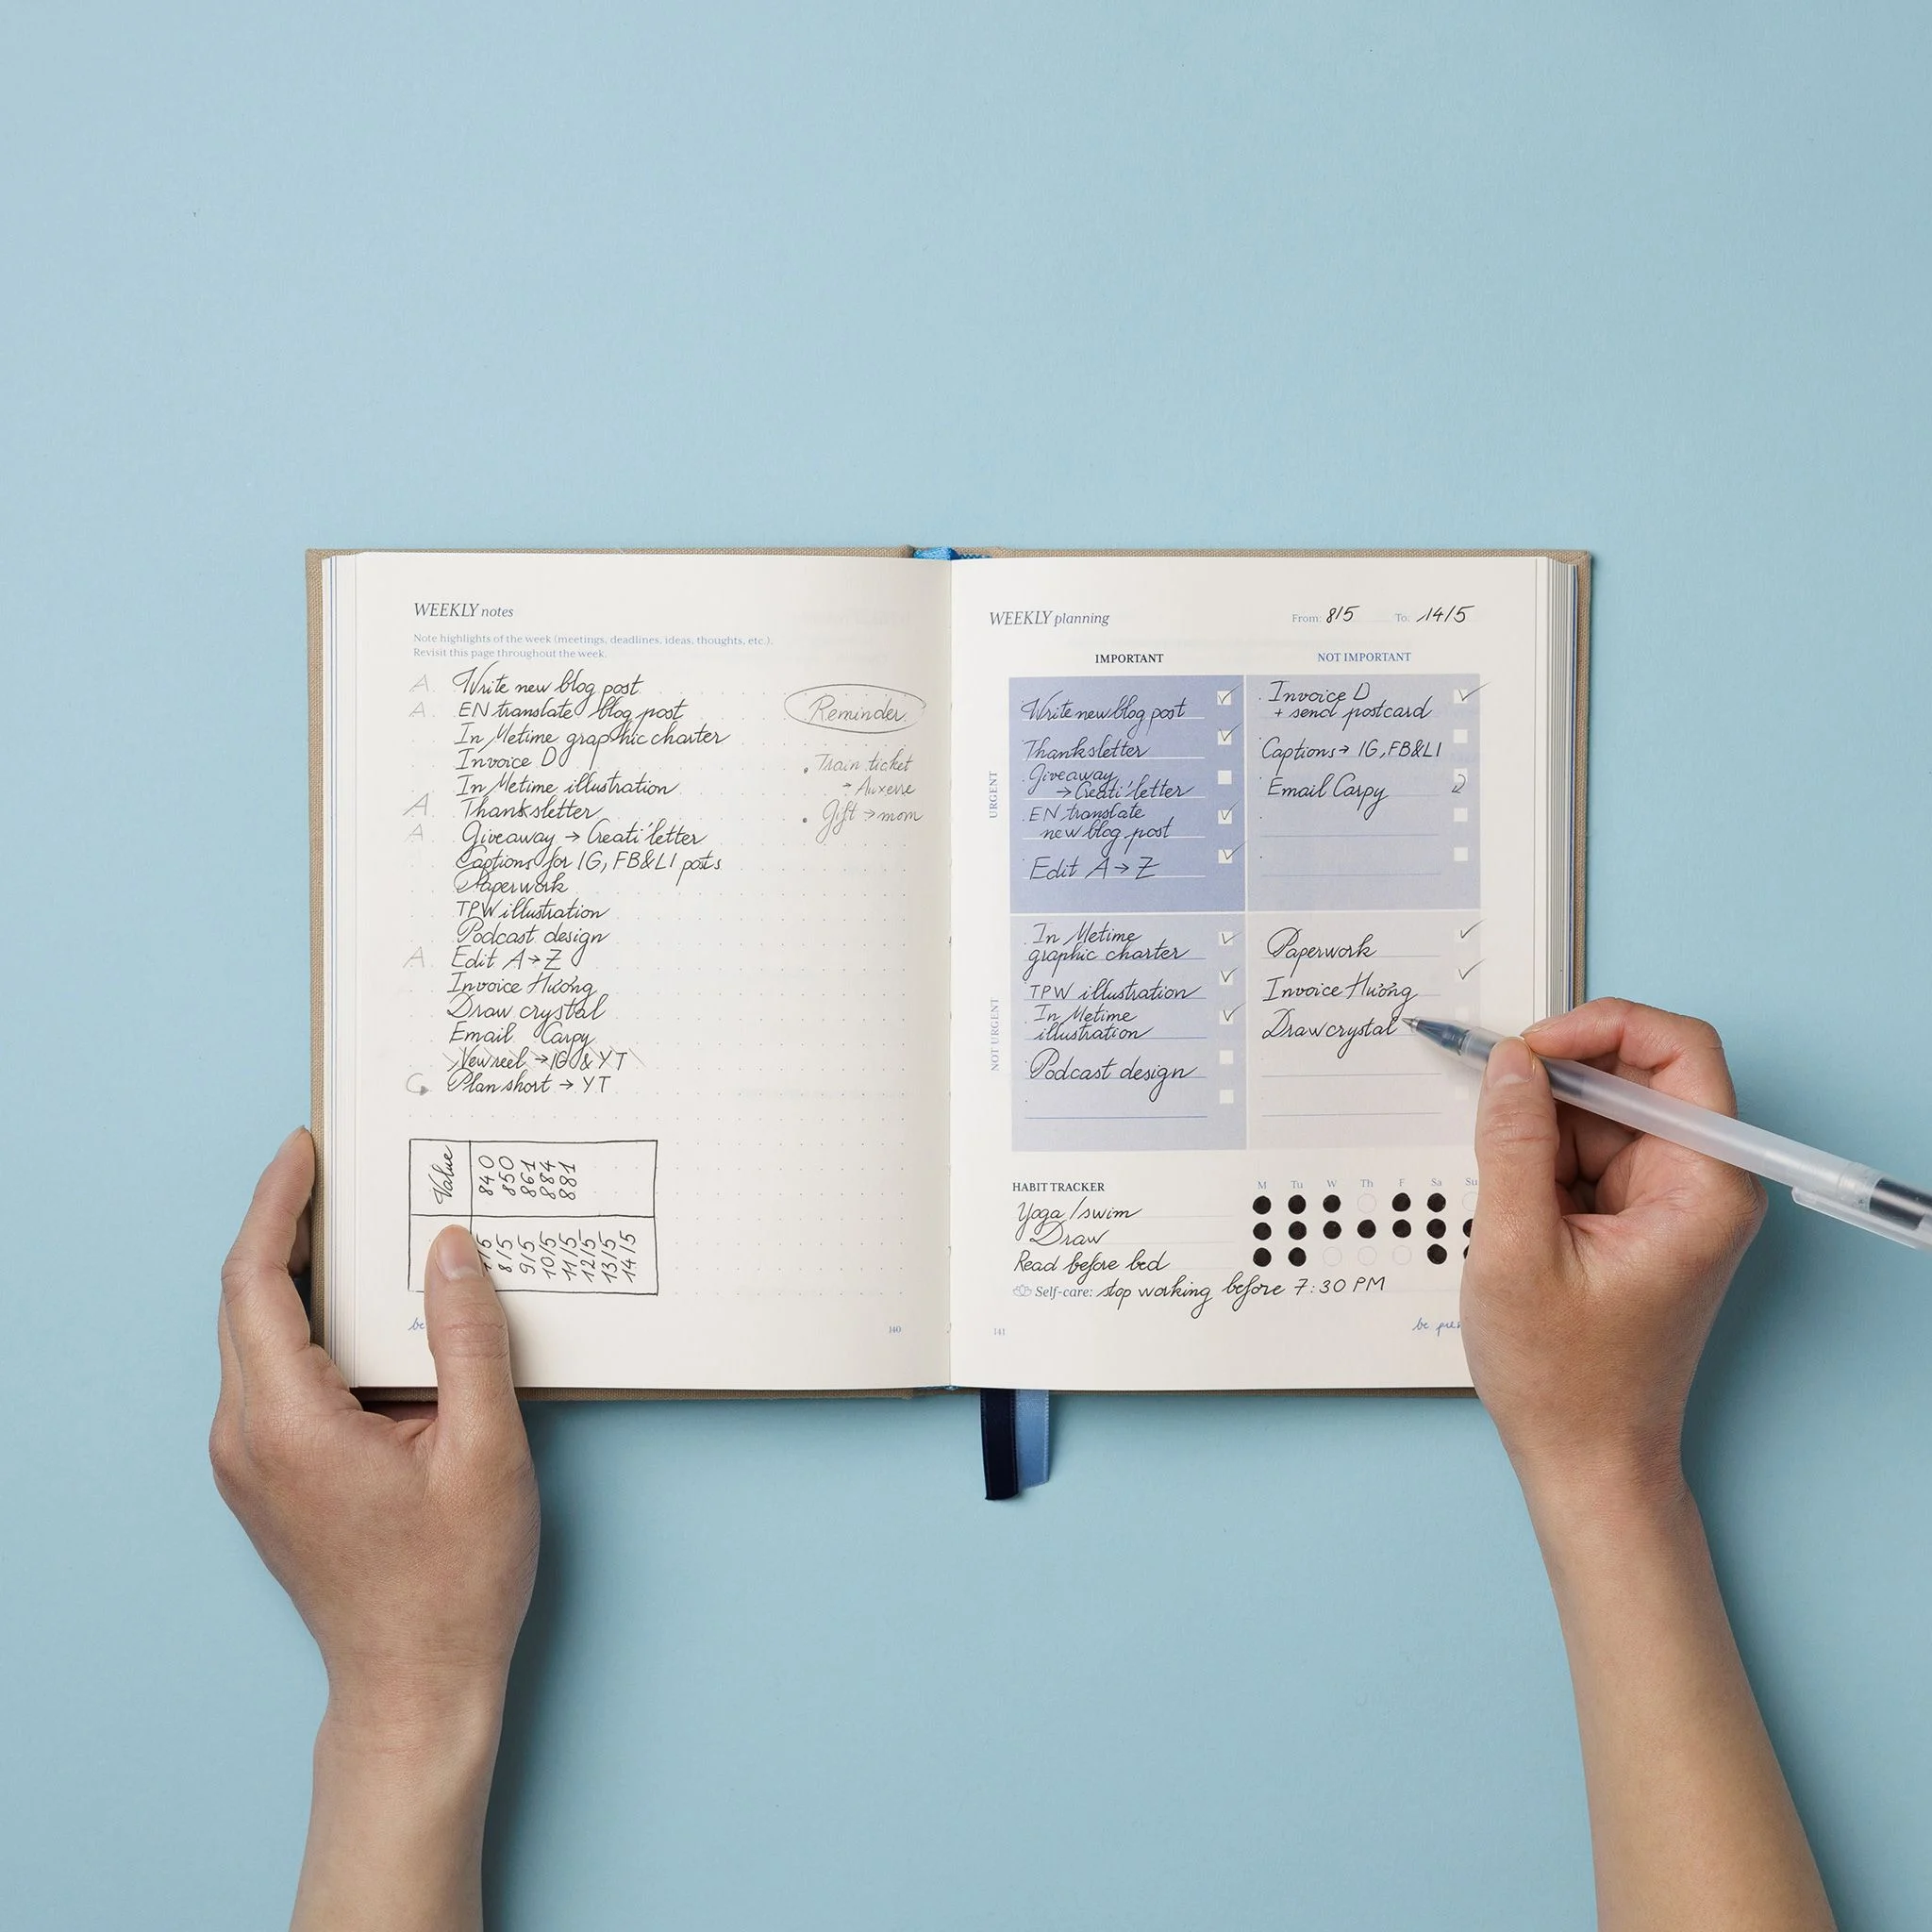 WEEKLY notes
Note highlights of the week (meetings, deadlines, ideas, thoughts, etc.).
Revisit this page throughout the week.
A. Write new blog post
A. EN translate blog post
In Metime graphic charter
Invoice D
In Metime illustration
A. Thanksletter
A. Giveaway → Creati'letter
Captions for IG, FB&LI posts
Paperwork
TPW illustration
Podcast design
A. Edit A→Z
Invoice Hương
Draw crystal
Email Carpy
New reel → IG & YT
Plan short → YT
Reminder
. Train ticket
→ Auxerre
. Gift → mom
Value
840
850
861
884
881
/5
8/5
9/5
10/5
11/5
12/5
13/5
14/5
be
140
WEEKLY planning
From: 8/5 To: 14/5
IMPORTANT
NOT IMPORTANT
URGENT
Write new blog post
Thanksletter
Giveaway
→ Creati'letter
EN translate
new blog post
Edit A→Z
Invoice D
+ send postcard
Captions → IG, FB&LI
Email Carpy
NOT URGENT
In Metime
graphic charter
TPW illustration
In Metime
illustration
Podcast design
Paperwork
Invoice Hương
Draw crystal
HABIT TRACKER M Tu W Th F Sa Su
Yoga/swim
Draw
Read before bed
Self-care: stop working before 7:30 PM
141
be